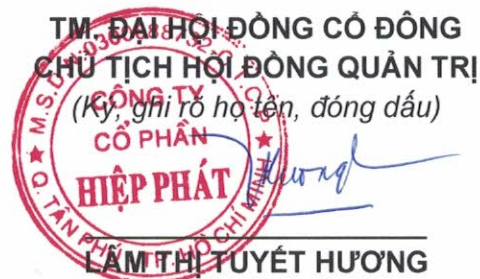 TM. ĐẠI HỘI ĐỒNG CỔ ĐÔNG
CHỦ TỊCH HỘI ĐỒNG QUẢN TRỊ
(Ký, ghi rõ họ tên, đóng dấu)
CÔNG TY
CỔ PHẦN
HIỆP PHÁT
Q. TÂN PHÚ - TP. HỒ CHÍ MINH
Hương
LÂM THỊ TUYẾT HƯƠNG